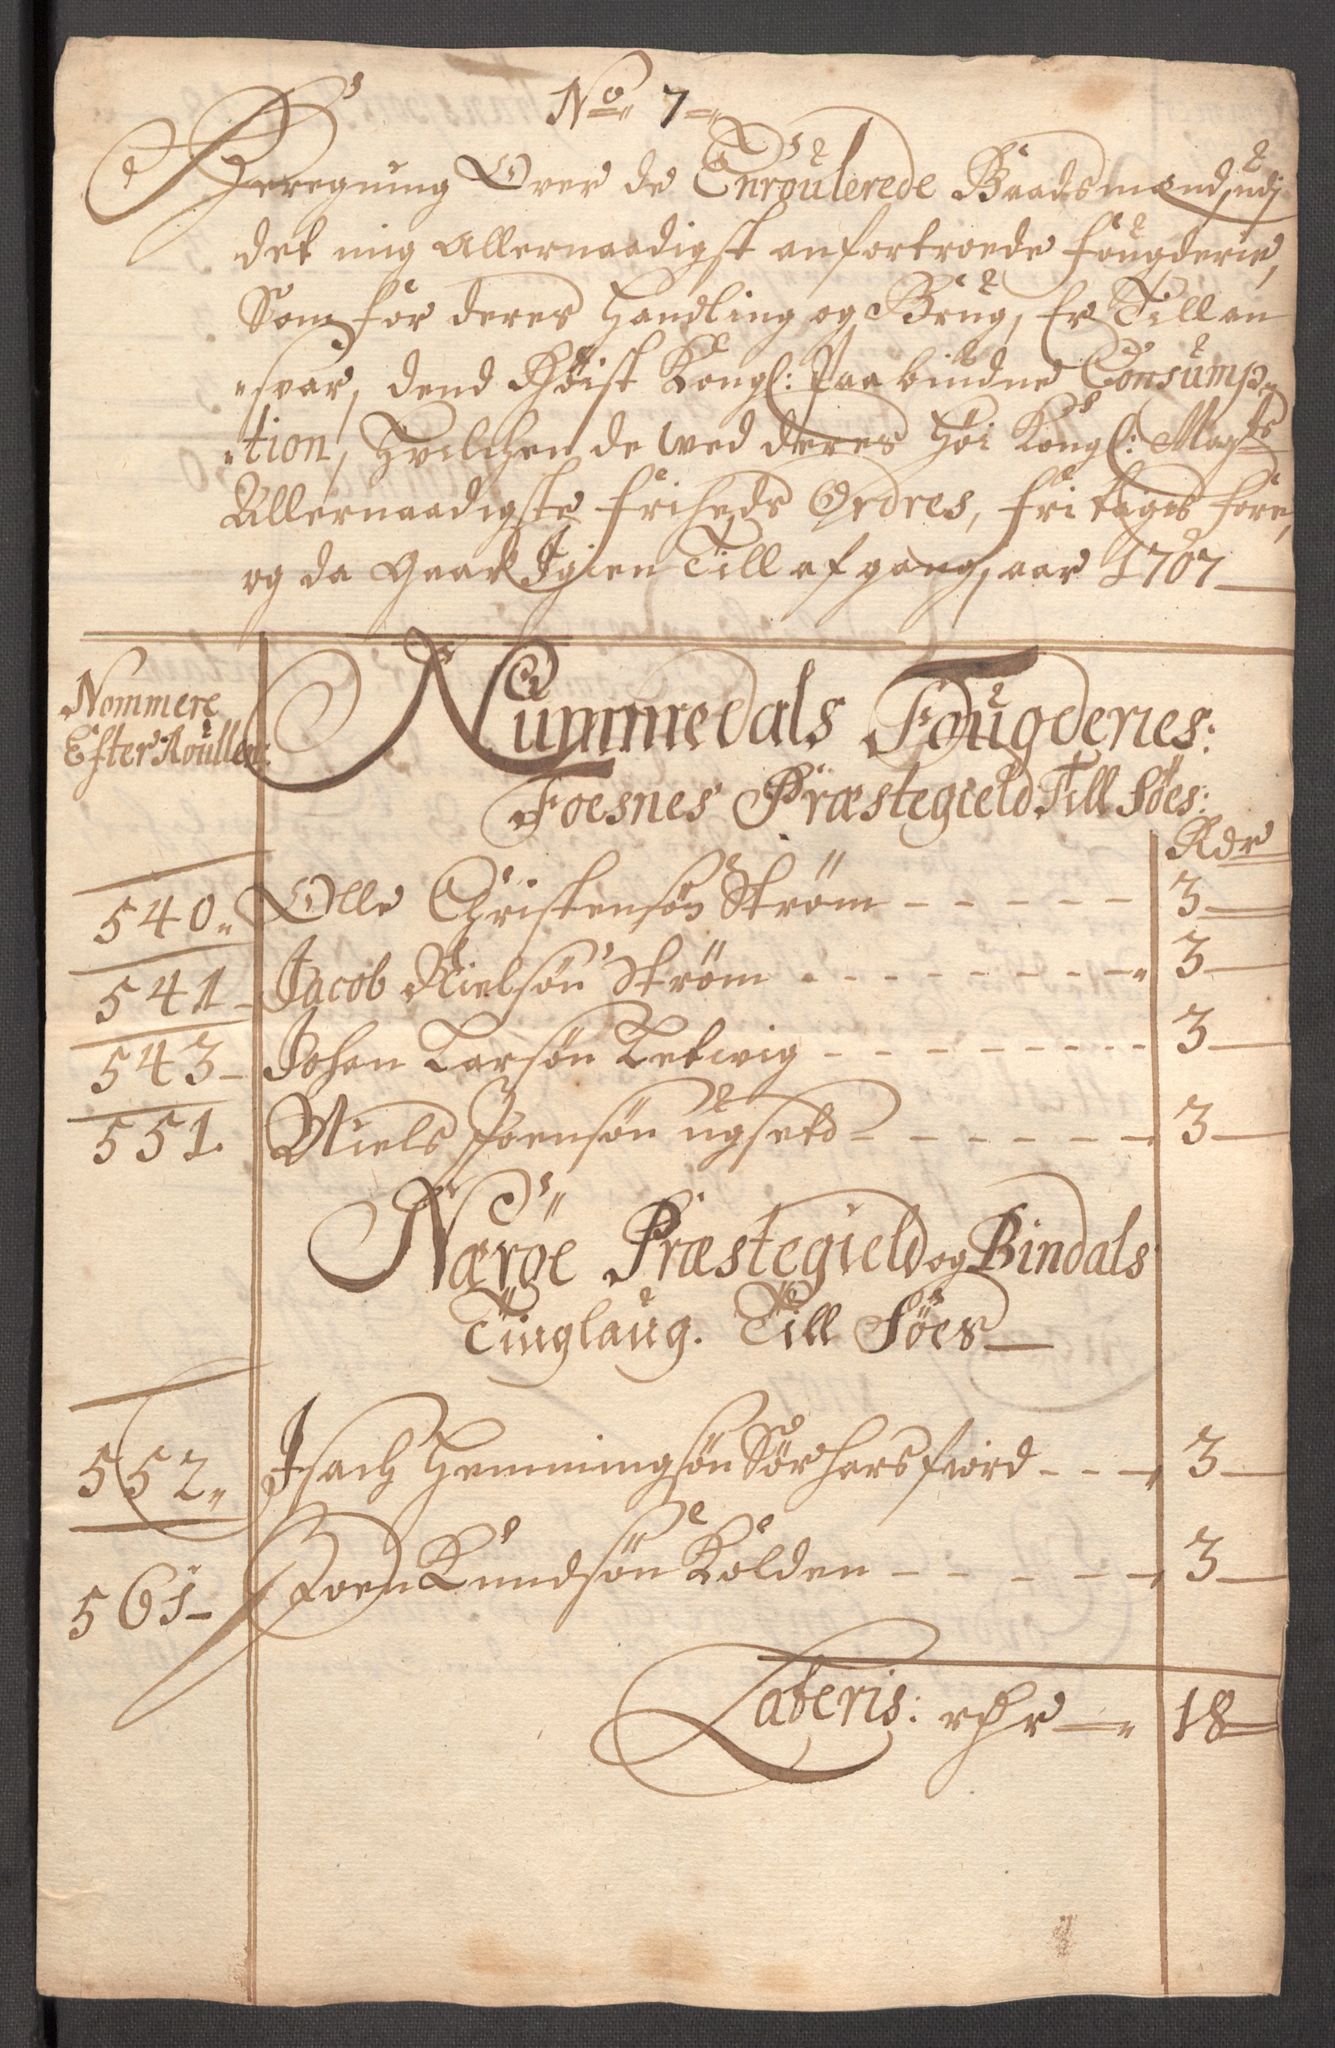 No 7
Beregning Over de Enroulerede Baadsmænd, udj
det mig allernaadigst anfortroede fougderie,
Som for deres Handling og Brug, Er Till an
svar, dend Høist Kongl: Paabudne Consump-
tion, Hvilchen de wed deres Høi Kongl: Mayts
Allernaadigste friheds Ordres, fri tages fore,
og da gaar Igien Till afgang, aar 1707
Nommere
Efter Roullen:
Nummedals Fougderies:
Foesnes Præstegield Till Søes:
Rdr
540 Olle Christensøn Strøm - - - - - 3
541 Jacob Nielsøn Strøm - - - - - - 3
543 Johan Larsøn Ketwig - - - - - - 3
551 Niels Joensøn ugsetd - - - - - - 3
Nærøe Præstegield og Bindals
Tinglaug. Till Søes
552 Isach Hemmingsøn Sørhorsfiord - - - 3
561 Joen Knudsøn Kolden - - - - - 3
Lateris: rdr 18